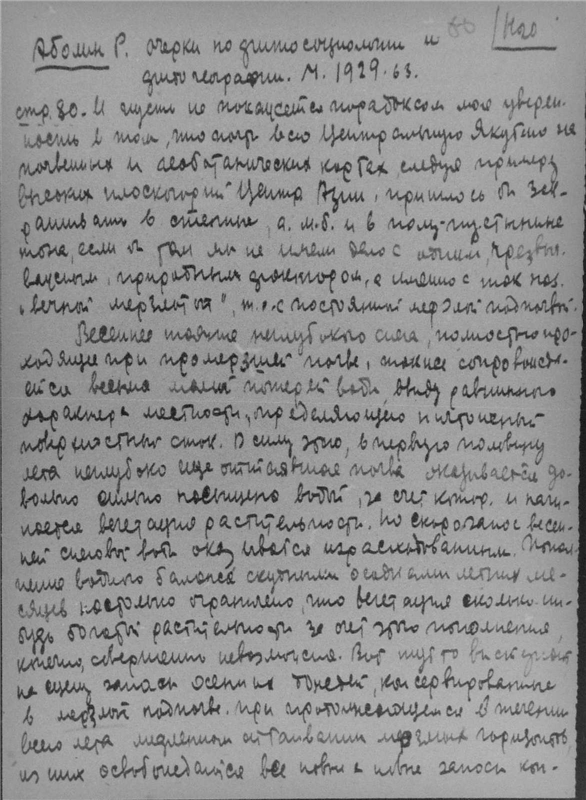 80 / Наз
Аболин Р. Очерки по фитосоциологии и
фитогеографии. М. 1929. 63.
стр. 80. И пусть не покажется парадоксом мою уверен-
ность в том, что почти всю Центральную Якутию на
почвенных и геоботанических картах следуя примеру
высоких плоскогорий Центр. Азии, пришлось бы зак-
рашивать в степные, а м.б. и в полу-пустынные
тона, если б там мы не имели дело с одним, чрезвы.
важным, природным фактором, а именно с так наз.
"вечной мерзлотой", т.е. с постоянной мерзлой подпочвой.
Весеннее таяние неглубокого снега, полностью про-
ходящее при промерзшей почве, также сопровождa-
ется весьма малой потерей воды, ввиду равнинного
характера местности, определяющего ничтожный
поверхностный сток. В силу этого, в первую половину
лета неглубоко еще оттаявшая почва оказывается до-
вольно сильно насыщена водой, за счет котор. и начи-
нается вегетация растительности. Но скоро запас весен-
ней снеговой воды оказывается израсходованным. Попол-
нение водного баланса скудными осадками летних ме-
сяцев настолько ограничено, что вегетация сколько-ни-
будь богатой растительности за счет этого пополнения,
конечно, совершенно невозможна. Вот тут то и выступают
на сцену запасы осенних дождей, консервированные
в мерзлой подпочве. При продолжающемся в течении
всего лета медленном оттаивании мерзлых горизонтов,
из них освобождаются все новые и новые запасы кон-